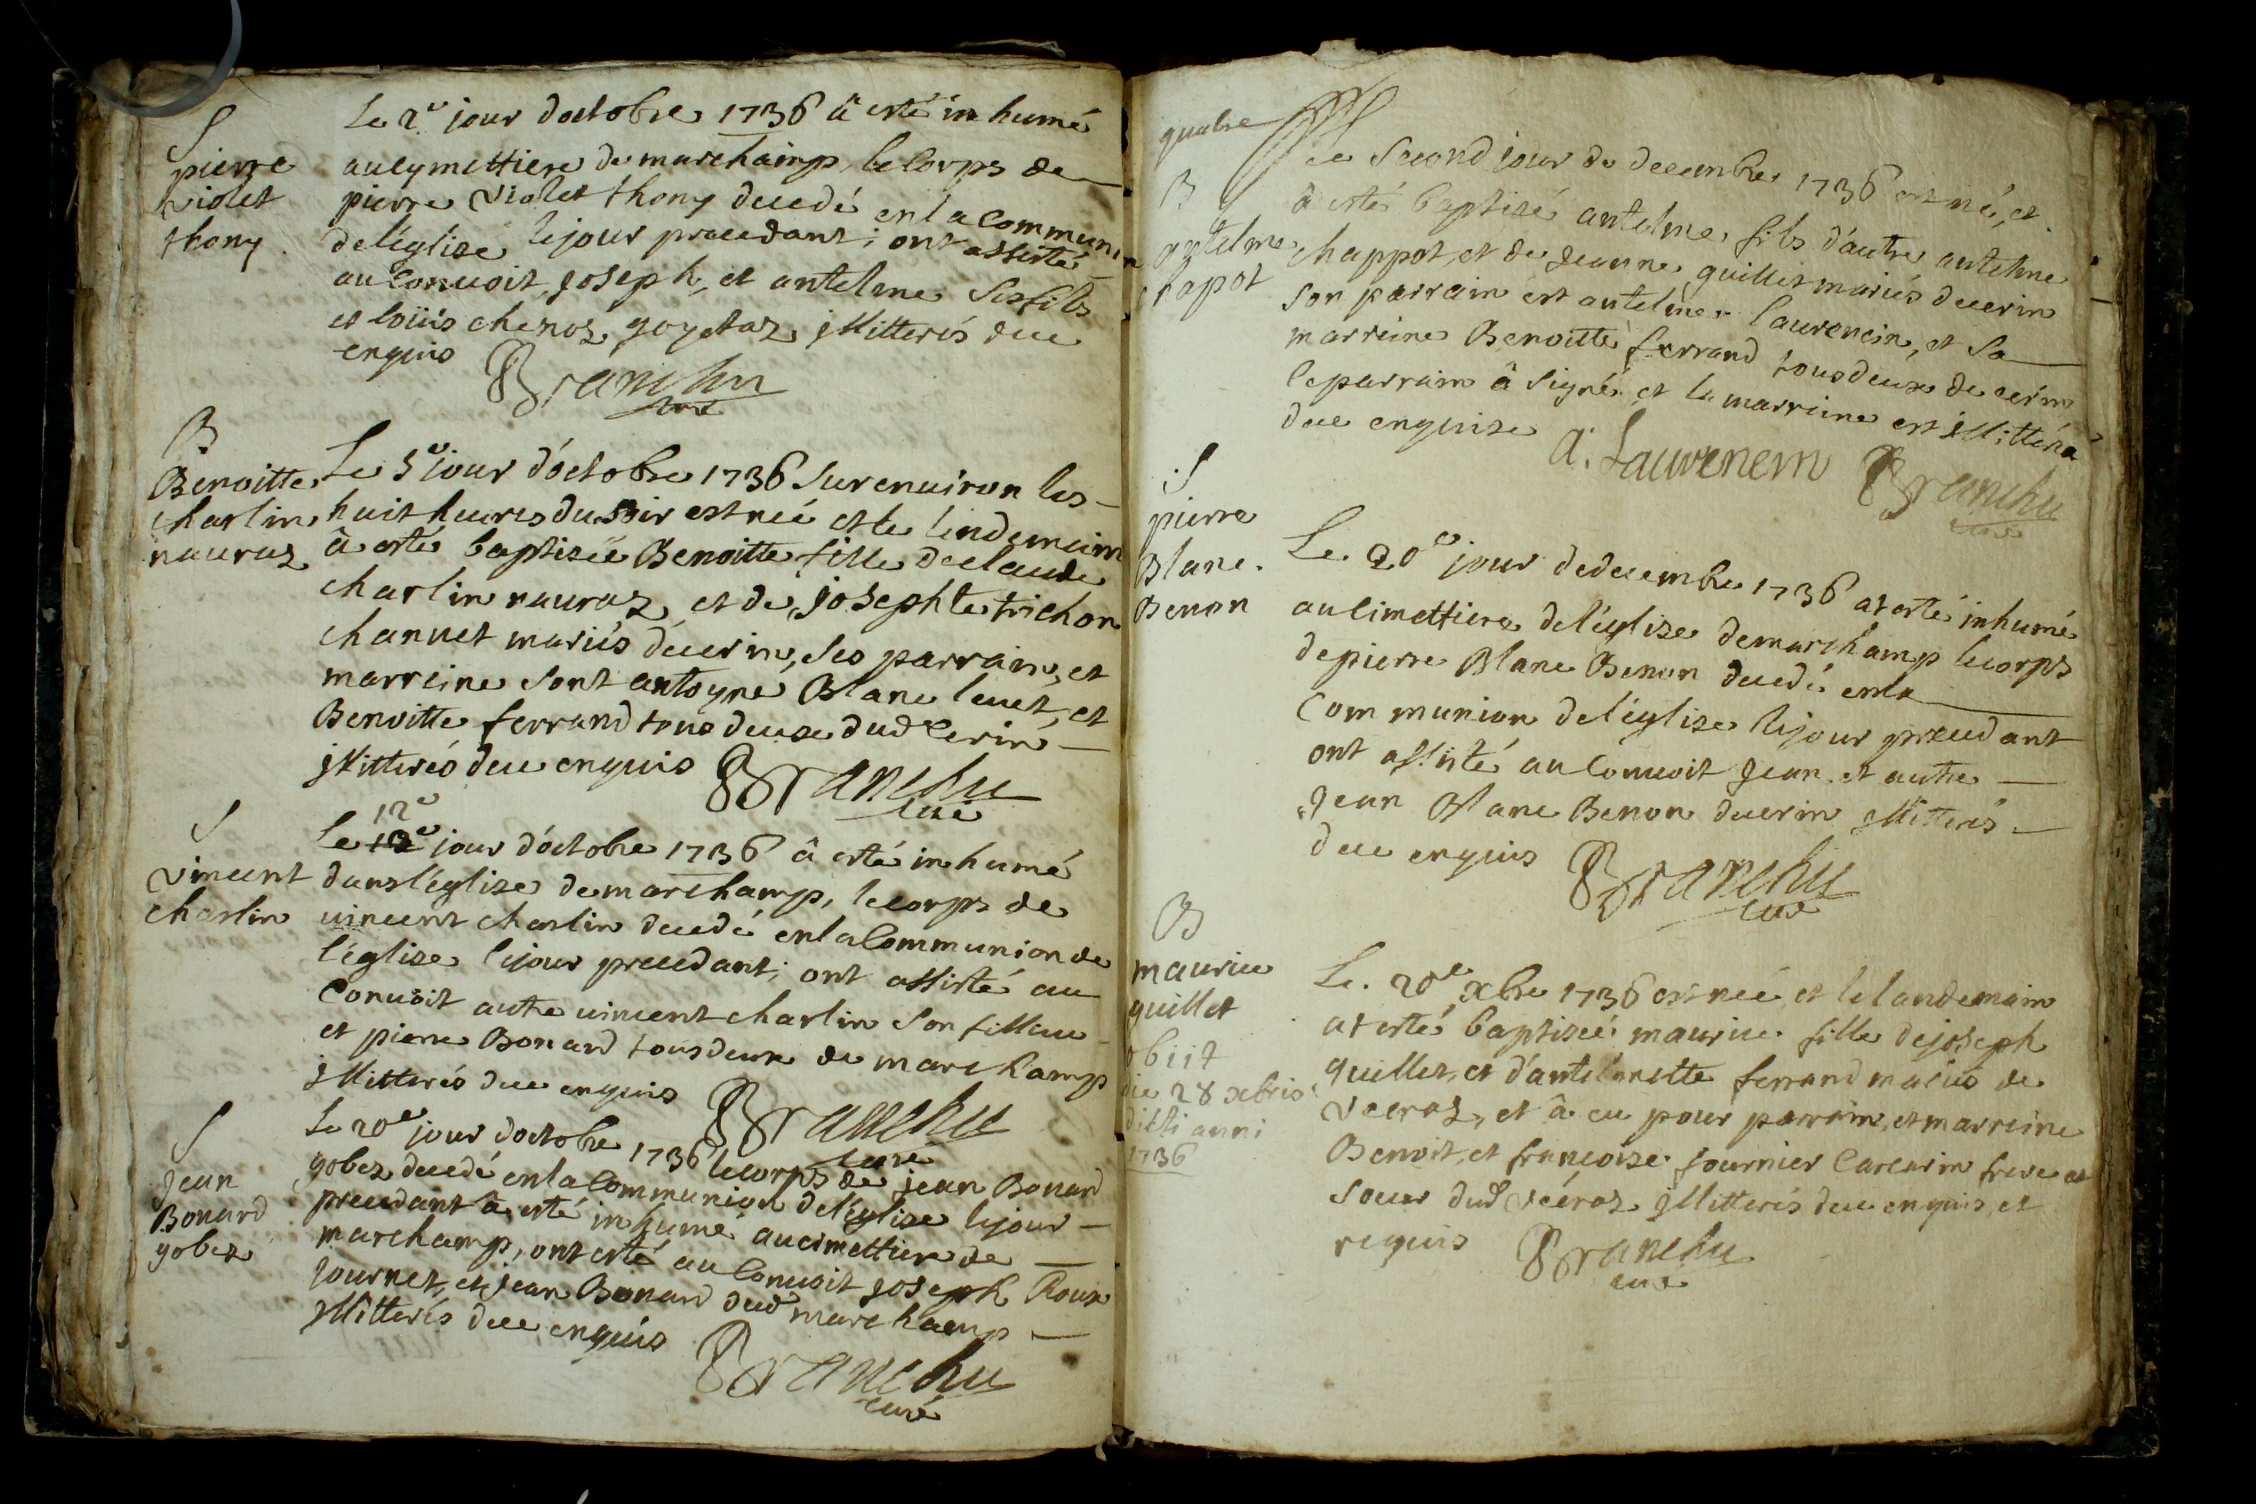 S
pierre
violet
thony
Le 2e jour doctobre 1736 â esté in humé
au cymettiere de marchamp le Corps de
pierre violet thony decedé en la Commun
de l'église le jour precedant; ont assisté
au Convoit, joseph, et antelme ses fils
et loüis chenoz goyetaz illitterés de ce
enquis
Branchu
curé
B
Benoitte
charlin
nauraz
Le 5e jour d'octobre 1736 sur environ les
huit heures du soir est née et le lendemain
à esté baptisée Benoitte fille de claude
charlin nauraz, et de josephte trichon
channet mariés de cerin, ses parrain, et
marreine sont antoyne Blanc levet, et
Benoitte ferrand tous deux dud Cerin
illitterés de ce enquis
Branchu
curé
S
vincent
charlin
12e
Le jour d'octobre 1736 â esté inhumé
dans l'église de marchamp, le corps de
vincent charlin decedé en la Communion de
l'église le jour precedant; ont assisté au
Convoit autre vincent charlin son filleu
et pierre Bonard tous deux de marchamp
illitterés de ce enquis
Branchu
curé
S
jean
Bonard
gobez
Le 20e jour doctobre 1736 le corps de jean Bonard
gobez decedé en la Communion de l'église le jour
precedant â esté inhumé au cimettiere de
marchamp, ont esté au Convoit joseph Roux
journet, et jean Bonard dud marchamp
illitterés de ce enquis
Branchu
curé
quatre
B
antelme
chapot
Le second jour de decembre 1736 est né, et
à esté baptisé antelme, fils d'autre antelme
chappot, et de jeanne guillet mariés de cerin
son parrain est antelme laurencin, et sa
marreine Benoitte ferrand tous deux de cerin
le parrain â signé et la marreine est illitteré
de ce enquise
A. Laurencin Branchu
curé
S
pierre
Blanc
Benon
Le 20e jour de decembre 1736 at esté inhumé
au cimettiere de l'église de marchamp le corps
de pierre Blanc Benon decedé en la
Communion de l'église le jour precedant
ont assisté au Convoit jean et autre
jean Blanc Benon de cerin illitterés
de ce enquis
Branchu
curé
B
maurice
guillet
obiit
die 28 xbris
dicti anni
1736
Le 20e xbre 1736 est née et le landemain
at esté baptisée maurice fille de joseph
guillet, et d'antelmette ferrand mariés de
veeraz, et â eu pour parrain, et marreine
Benoit, et françoise fournier Carcarin frere et
soeur dud veéraz illitterés de ce enquis, et
requis
Branchu
curé